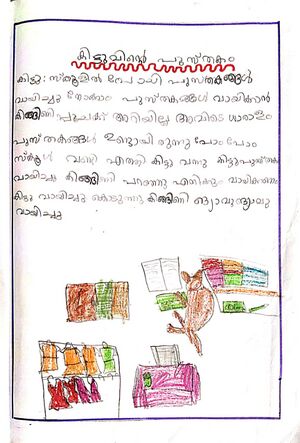 കിട്ടുവിന്റെ പുസ്തകം
കിട്ടു: സ്കൂളിൽ പോയി പുസ്തകങ്ങൾ
വായിച്ചു നോക്കാം പുസ്തകങ്ങൾ വായിക്കാൻ
കിങ്ങിണി പൂച്ചക്ക് അറിയില്ല അവിടെ ധാരാളം
പുസ്തകങ്ങൾ ഉണ്ടായിരുന്നു പോം പോം
സ്കൂൾ വണ്ടി എത്തി കിട്ടു വന്നു കിട്ടു പുസ്തകം
വായിച്ചു കിങ്ങിണി പറഞ്ഞു എനിക്കും വായിക്കണം
കിട്ടു വായിച്ചു കൊടുത്തു കിങ്ങിണി
വായിച്ചു